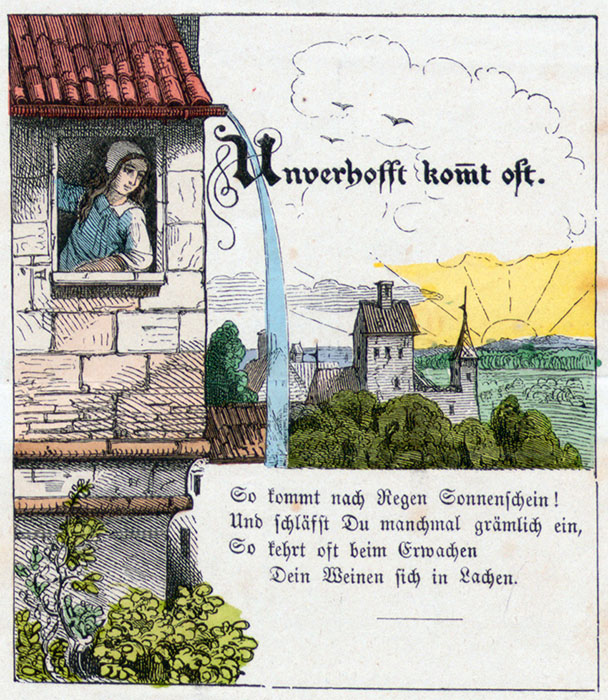 Unverhofft kom̅t oft.
So kommt nach Regen Sonnenschein!
Und schläfst Du manchmal grämlich ein,
So kehrt oft beim Erwachen
Dein Weinen sich in Lachen.